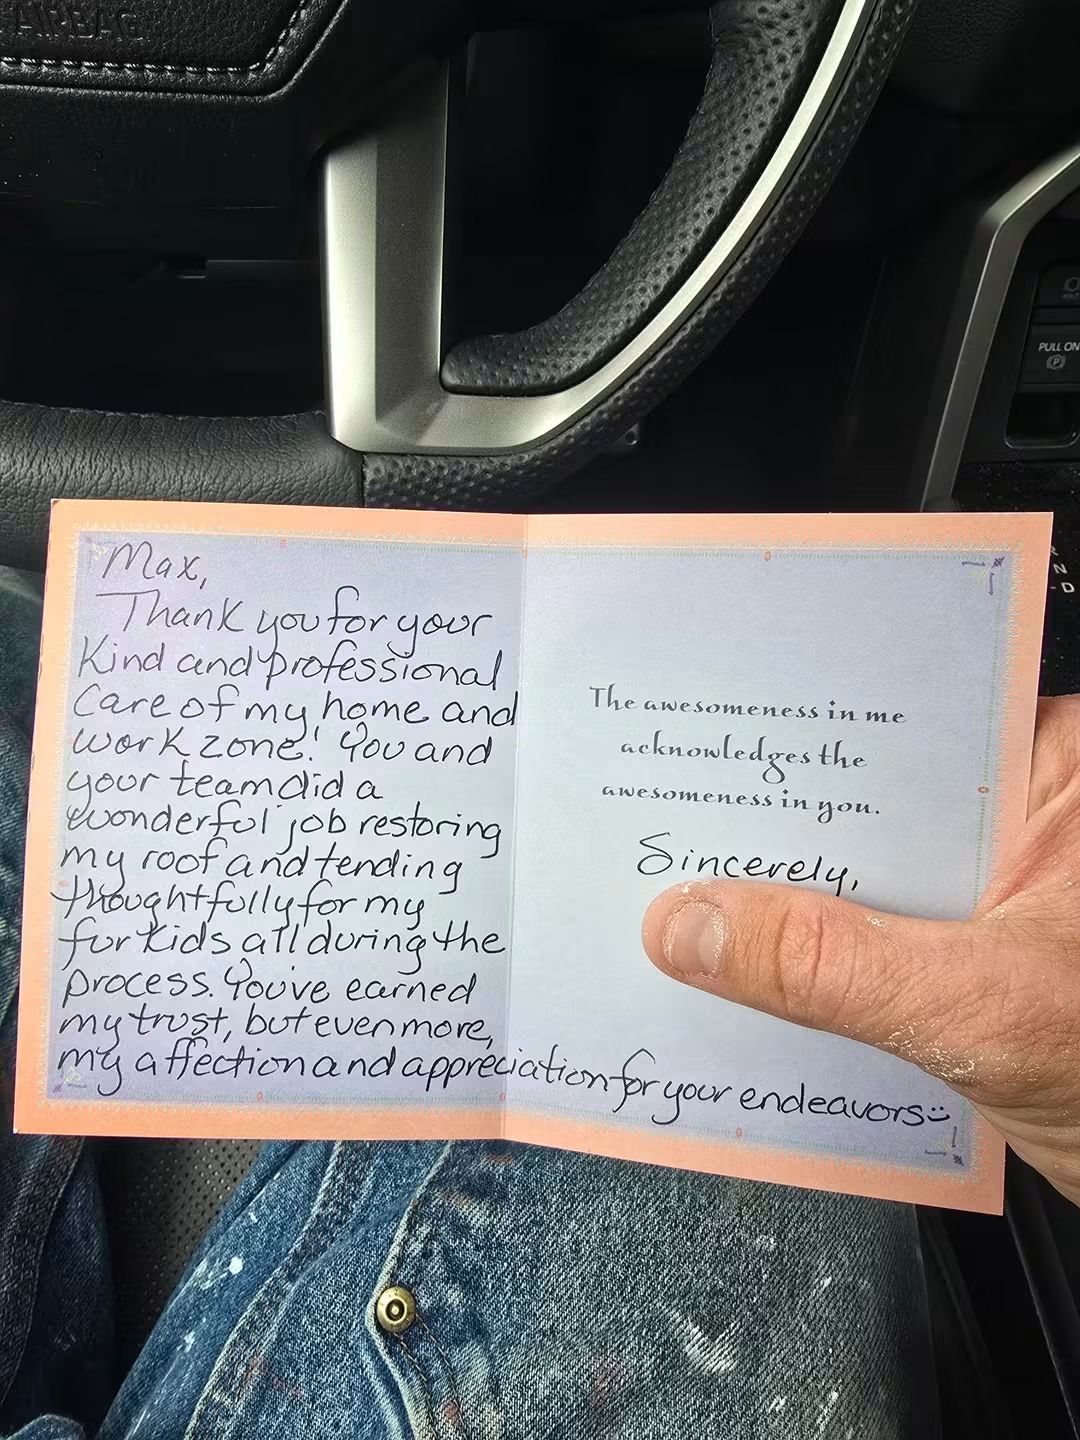 AIRBAG
PULL ON
P
R
N
D
Max,
Thank you for your
kind and professional
care of my home and
work zone! You and
your team did a
wonderful job restoring
my roof and tending
thoughtfully for my
fur kids all during the
process. You've earned
my trust, but even more,
my affection and appreciation for your endeavors :)
The awesomeness in me
acknowledges the
awesomeness in you.
Sincerely,